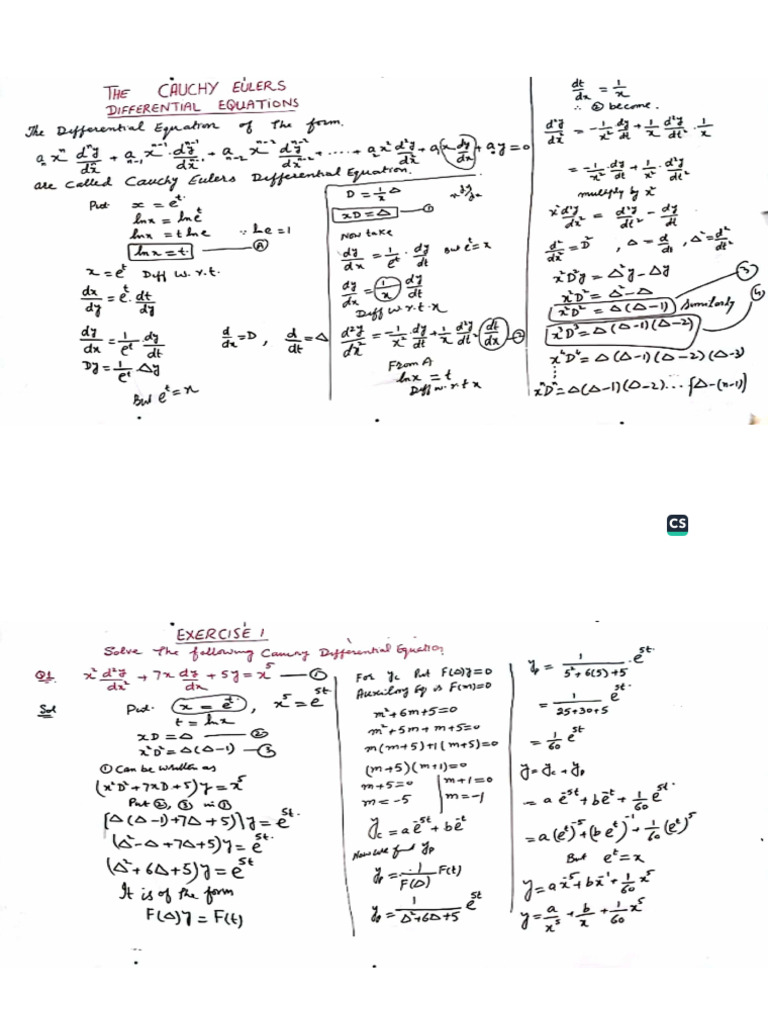 THE CAUCHY EULERS
DIFFERENTIAL EQUATIONS
The Differential Equation of the form.
aₙxⁿ dⁿy/dxⁿ + aₙ₋₁xⁿ⁻¹ dⁿ⁻¹y/dxⁿ⁻¹ + aₙ₋₂xⁿ⁻² dⁿ⁻²y/dxⁿ⁻² + ..... + a₂x² d²y/dx² + a₁x dy/dx + a₀y = 0
are called Cauchy Eulers Differential Equation.
Put x = eᵗ
lnx = lneᵗ
lnx = t lne ∵ lne = 1
lnx = t. — Ⓐ
x = eᵗ Diff w.r.t.
dx/dy = eᵗ. dt/dy
dy/dx = 1/eᵗ . dy/dt d/dx = D , d/dt = Δ
Dy = 1/eᵗ Δy
But eᵗ = x
D = 1/x Δ
xD = Δ — ①
Now take
dy/dx = 1/eᵗ . dy/dt But eᵗ = x
dy/dx = 1/x dy/dt
Diff w.r.t.x
d²y/dx² = -1/x² . dy/dt + 1/x d²y/dt² dt/dx — ②
From A
lnx = t
Diff w.r.t x
dt/dx = 1/x
∴ ② become.
d²y/dx² = -1/x² dy/dt + 1/x d²y/dt² . 1/x
= -1/x² . dy/dt + 1/x² . d²y/dt²
multiply by x²
x² d²y/dx² = d²y/dt² - dy/dt
d²/dx² = D² , Δ = d/dt , Δ² = d²/dt²
x²D²y = Δ²y - Δy
x²D² = Δ² - Δ
x²D² = Δ(Δ-1) — ③ Similarly
x³D³ = Δ(Δ-1)(Δ-2) — ④
x⁴D⁴ = Δ(Δ-1)(Δ-2)(Δ-3)
⋮
xⁿDⁿ = Δ(Δ-1)(Δ-2)... [Δ-(n-1)]
CS
EXERCISE 1
Solve the following Cauchy Differential Equation
Q1 x² d²y/dx² + 7x dy/dx + 5y = x⁵ — ①
Sol Put. x = eᵗ , x⁵ = e⁵ᵗ
t = lnx
xD = Δ — ②
x²D² = Δ(Δ-1) — ③
① Can be written as
(x²D² + 7xD + 5)y = x⁵
Put ②, ③ in ①
[Δ(Δ-1) + 7Δ + 5]y = e⁵ᵗ
(Δ² - Δ + 7Δ + 5)y = e⁵ᵗ.
(Δ² + 6Δ + 5)y = e⁵ᵗ
It is of the form
F(Δ)y = F(t)
For yc Put F(Δ)y = 0
Auxiliary Eq is F(m) = 0
m² + 6m + 5 = 0
m² + 5m + m + 5 = 0
m(m+5) + 1(m+5) = 0
(m+5)(m+1) = 0
m + 5 = 0 | m + 1 = 0
m = -5 | m = -1
yc = a e⁻⁵ᵗ + b e⁻ᵗ
Now we find yp
yp = 1/F(Δ) F(t)
yp = 1/(Δ² + 6Δ + 5) e⁵ᵗ
yp = 1/(5² + 6(5) + 5) . e⁵ᵗ
= 1/(25 + 30 + 5) e⁵ᵗ
= 1/60 e⁵ᵗ
y = yc + yp
= a e⁻⁵ᵗ + b e⁻ᵗ + 1/60 e⁵ᵗ.
= a(eᵗ)⁻⁵ + (b eᵗ)⁻¹ + 1/60 (eᵗ)⁵
But eᵗ = x
y = a x⁻⁵ + b x⁻¹ + 1/60 x⁵
y = a/x⁵ + b/x + 1/60 x⁵